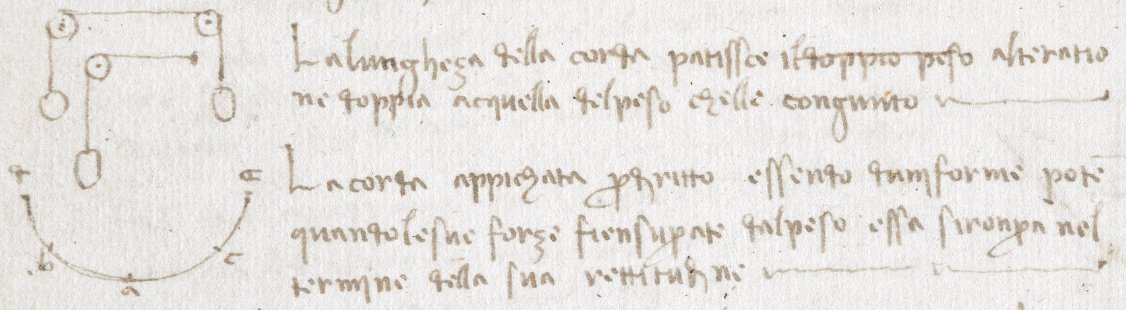 La lungheza della corda patissce il doppio peso alteratio
ne doppia acquella del peso chelle congunto
La corda appichata p diritto essendo duniforme potē
quando le sue forze fien supate dal peso essa si ronpa nel
termine della sua rettitudine
d
e
b
c
a